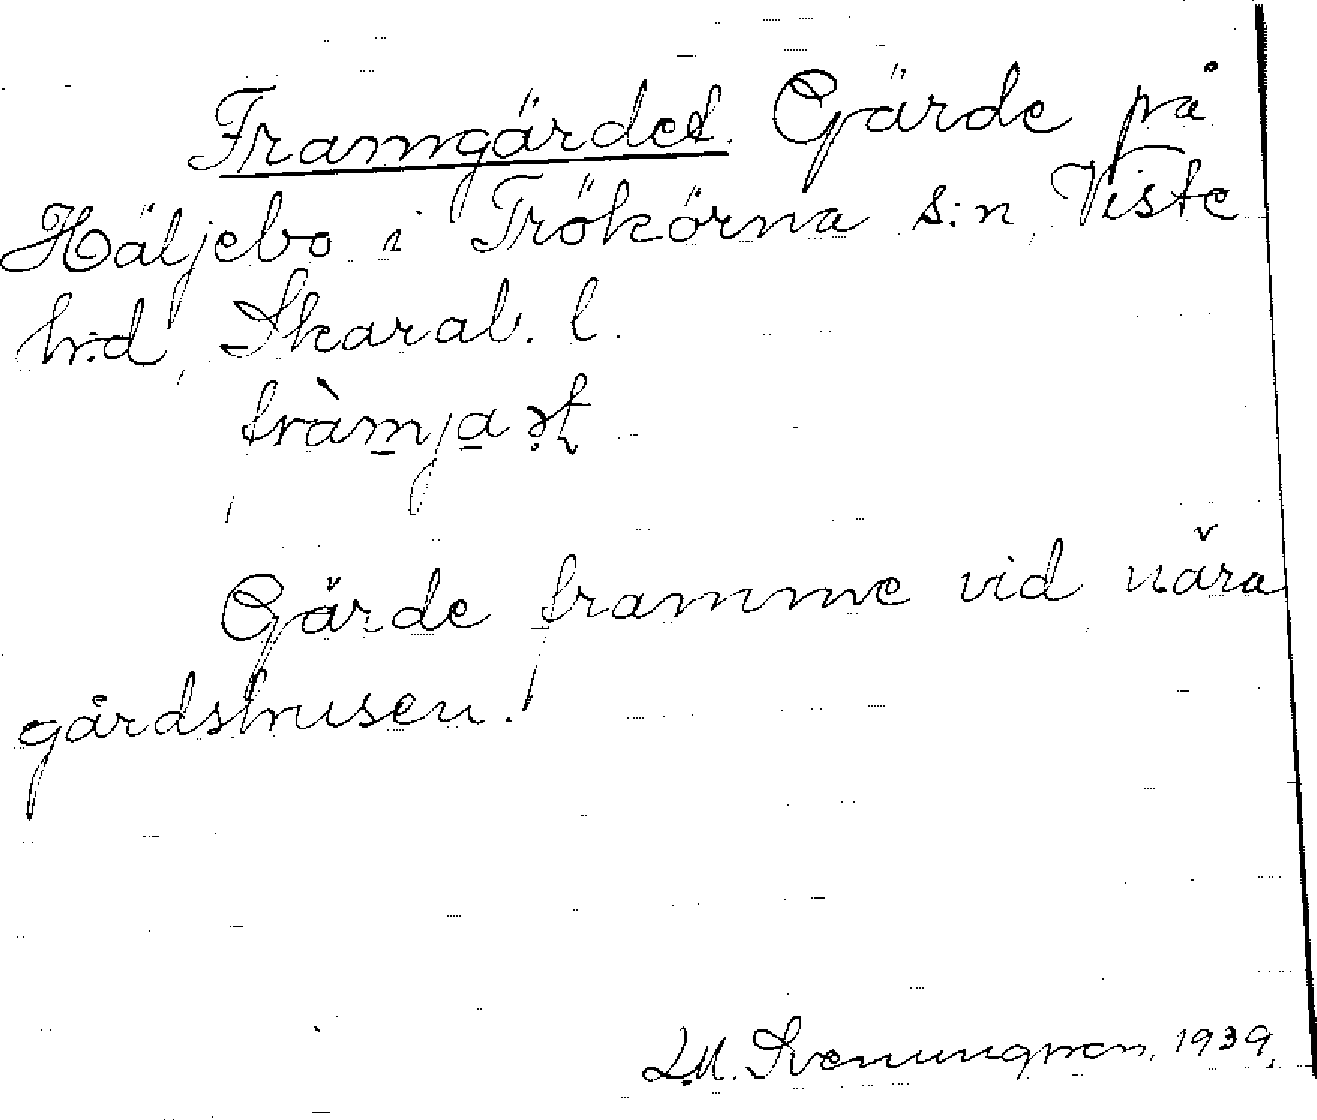 Framgärdet. Gärde på
Häljebo i Trökörna s:n, Viste
h:d, Skarab. l.
fràmjaət
Gärde framme vid nära
gårdshusen.
1939.